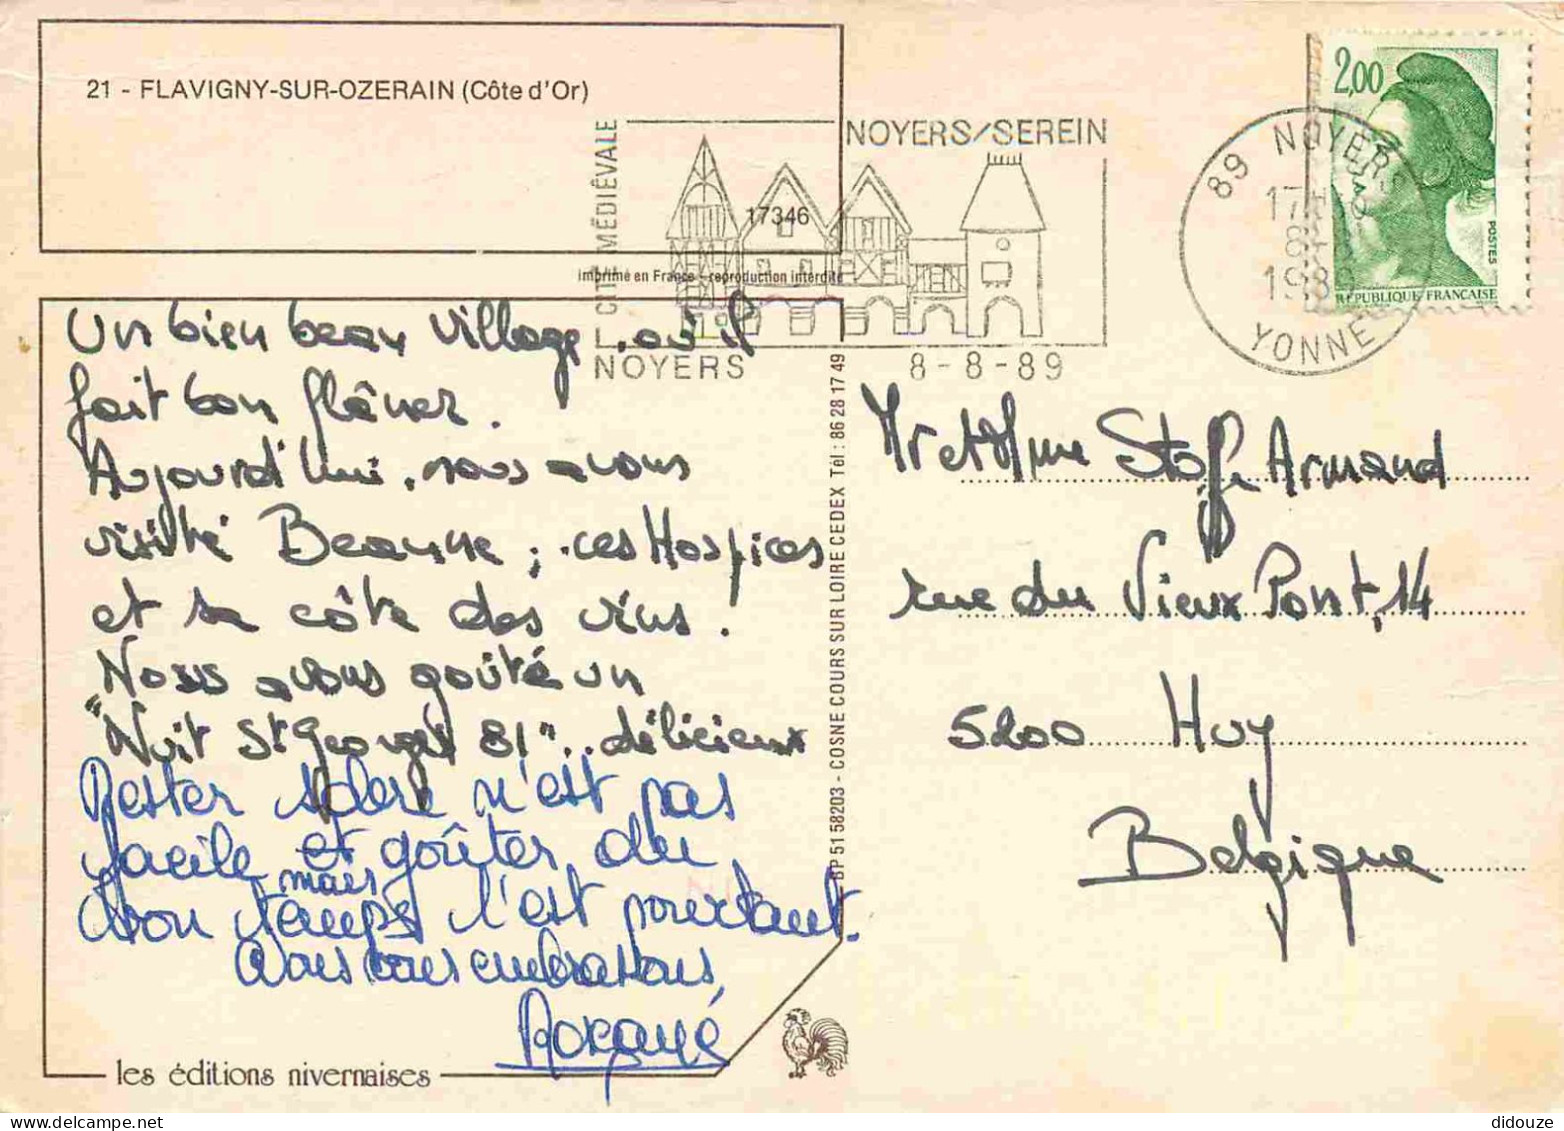 21 - FLAVIGNY-SUR-OZERAIN (Côte d'Or)
CITÉ MÉDIÉVALE
NOYERS/SEREIN
17346
imprimé en France - reproduction interdite
NOYERS
8-8-89
89 NOYERS
17H
8-8
1989
YONNE
2,00
POSTES
RÉPUBLIQUE FRANÇAISE
Un bien beau village. où il
fait bon flâner.
Aujourd'hui, nous avons
visité Beaune; ces Hospices
et sa côte des vins!
Nous avons goûté un
"Nuit St Georges 81"... délicieux
Rester sobre n'est pas
facile et goûter du
mais
bon temps l'est pourtant.
Nous vous embrassons,
Roxane
les éditions nivernaises
BP 51 58203 - COSNE COURS SUR LOIRE CEDEX Tél : 86 28 17 49
Mr et Mme Armand
rue du Vieux Pont, 14
5200 Huy
Belgique
didouze